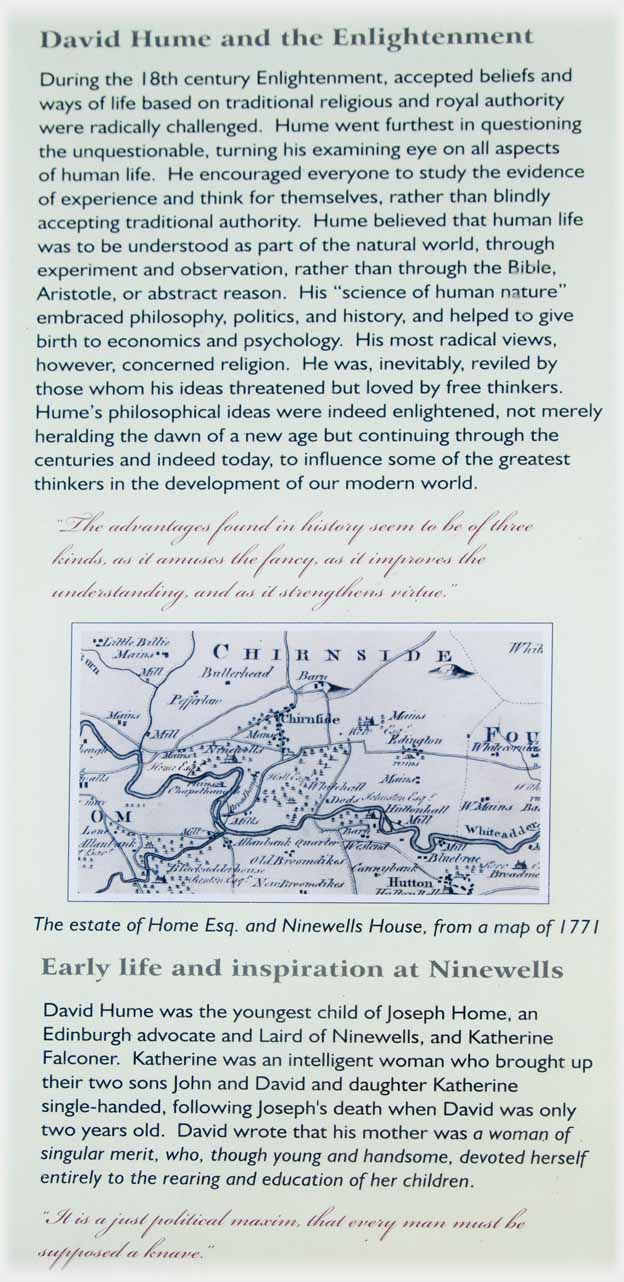 David Hume and the Enlightenment
During the 18th century Enlightenment, accepted beliefs and
ways of life based on traditional religious and royal authority
were radically challenged. Hume went furthest in questioning
the unquestionable, turning his examining eye on all aspects
of human life. He encouraged everyone to study the evidence
of experience and think for themselves, rather than blindly
accepting traditional authority. Hume believed that human life
was to be understood as part of the natural world, through
experiment and observation, rather than through the Bible,
Aristotle, or abstract reason. His “science of human nature”
embraced philosophy, politics, and history, and helped to give
birth to economics and psychology. His most radical views,
however, concerned religion. He was, inevitably, reviled by
those whom his ideas threatened but loved by free thinkers.
Hume's philosophical ideas were indeed enlightened, not merely
heralding the dawn of a new age but continuing through the
centuries and indeed today, to influence some of the greatest
thinkers in the development of our modern world.
“The advantages found in history seem to be of three
kinds, as it amuses the fancy, as it improves the
understanding, and as it strengthens virtue.”
Little Billie
Mains
CHIRNSIDE
Whit
Mill
Bullerhead
Barn
Pefferlaw
Mains
Chirnside
Mains
Mill
Mains
Edington
FOU
Mains
Ninewells
ruins
Whitecornlaws
Home Esq.
Chapelhaugh
Whitehall
Mains
Dods
Johnston Esq.
W. Mains
OM
Huttonhall
Mill
Mill
Mills
Barn
Whiteadder
Allanbank
Allanbank Quarter
Westend
Mill
Old Broomdikes
Bluebrae
Blackadderhouse
Cannybank
Broadme
New Broomdikes
Hutton
The estate of Home Esq. and Ninewells House, from a map of 1771
Early life and inspiration at Ninewells
David Hume was the youngest child of Joseph Home, an
Edinburgh advocate and Laird of Ninewells, and Katherine
Falconer. Katherine was an intelligent woman who brought up
their two sons John and David and daughter Katherine
single-handed, following Joseph's death when David was only
two years old. David wrote that his mother was a woman of
singular merit, who, though young and handsome, devoted herself
entirely to the rearing and education of her children.
“It is a just political maxim, that every man must be
supposed a knave.”